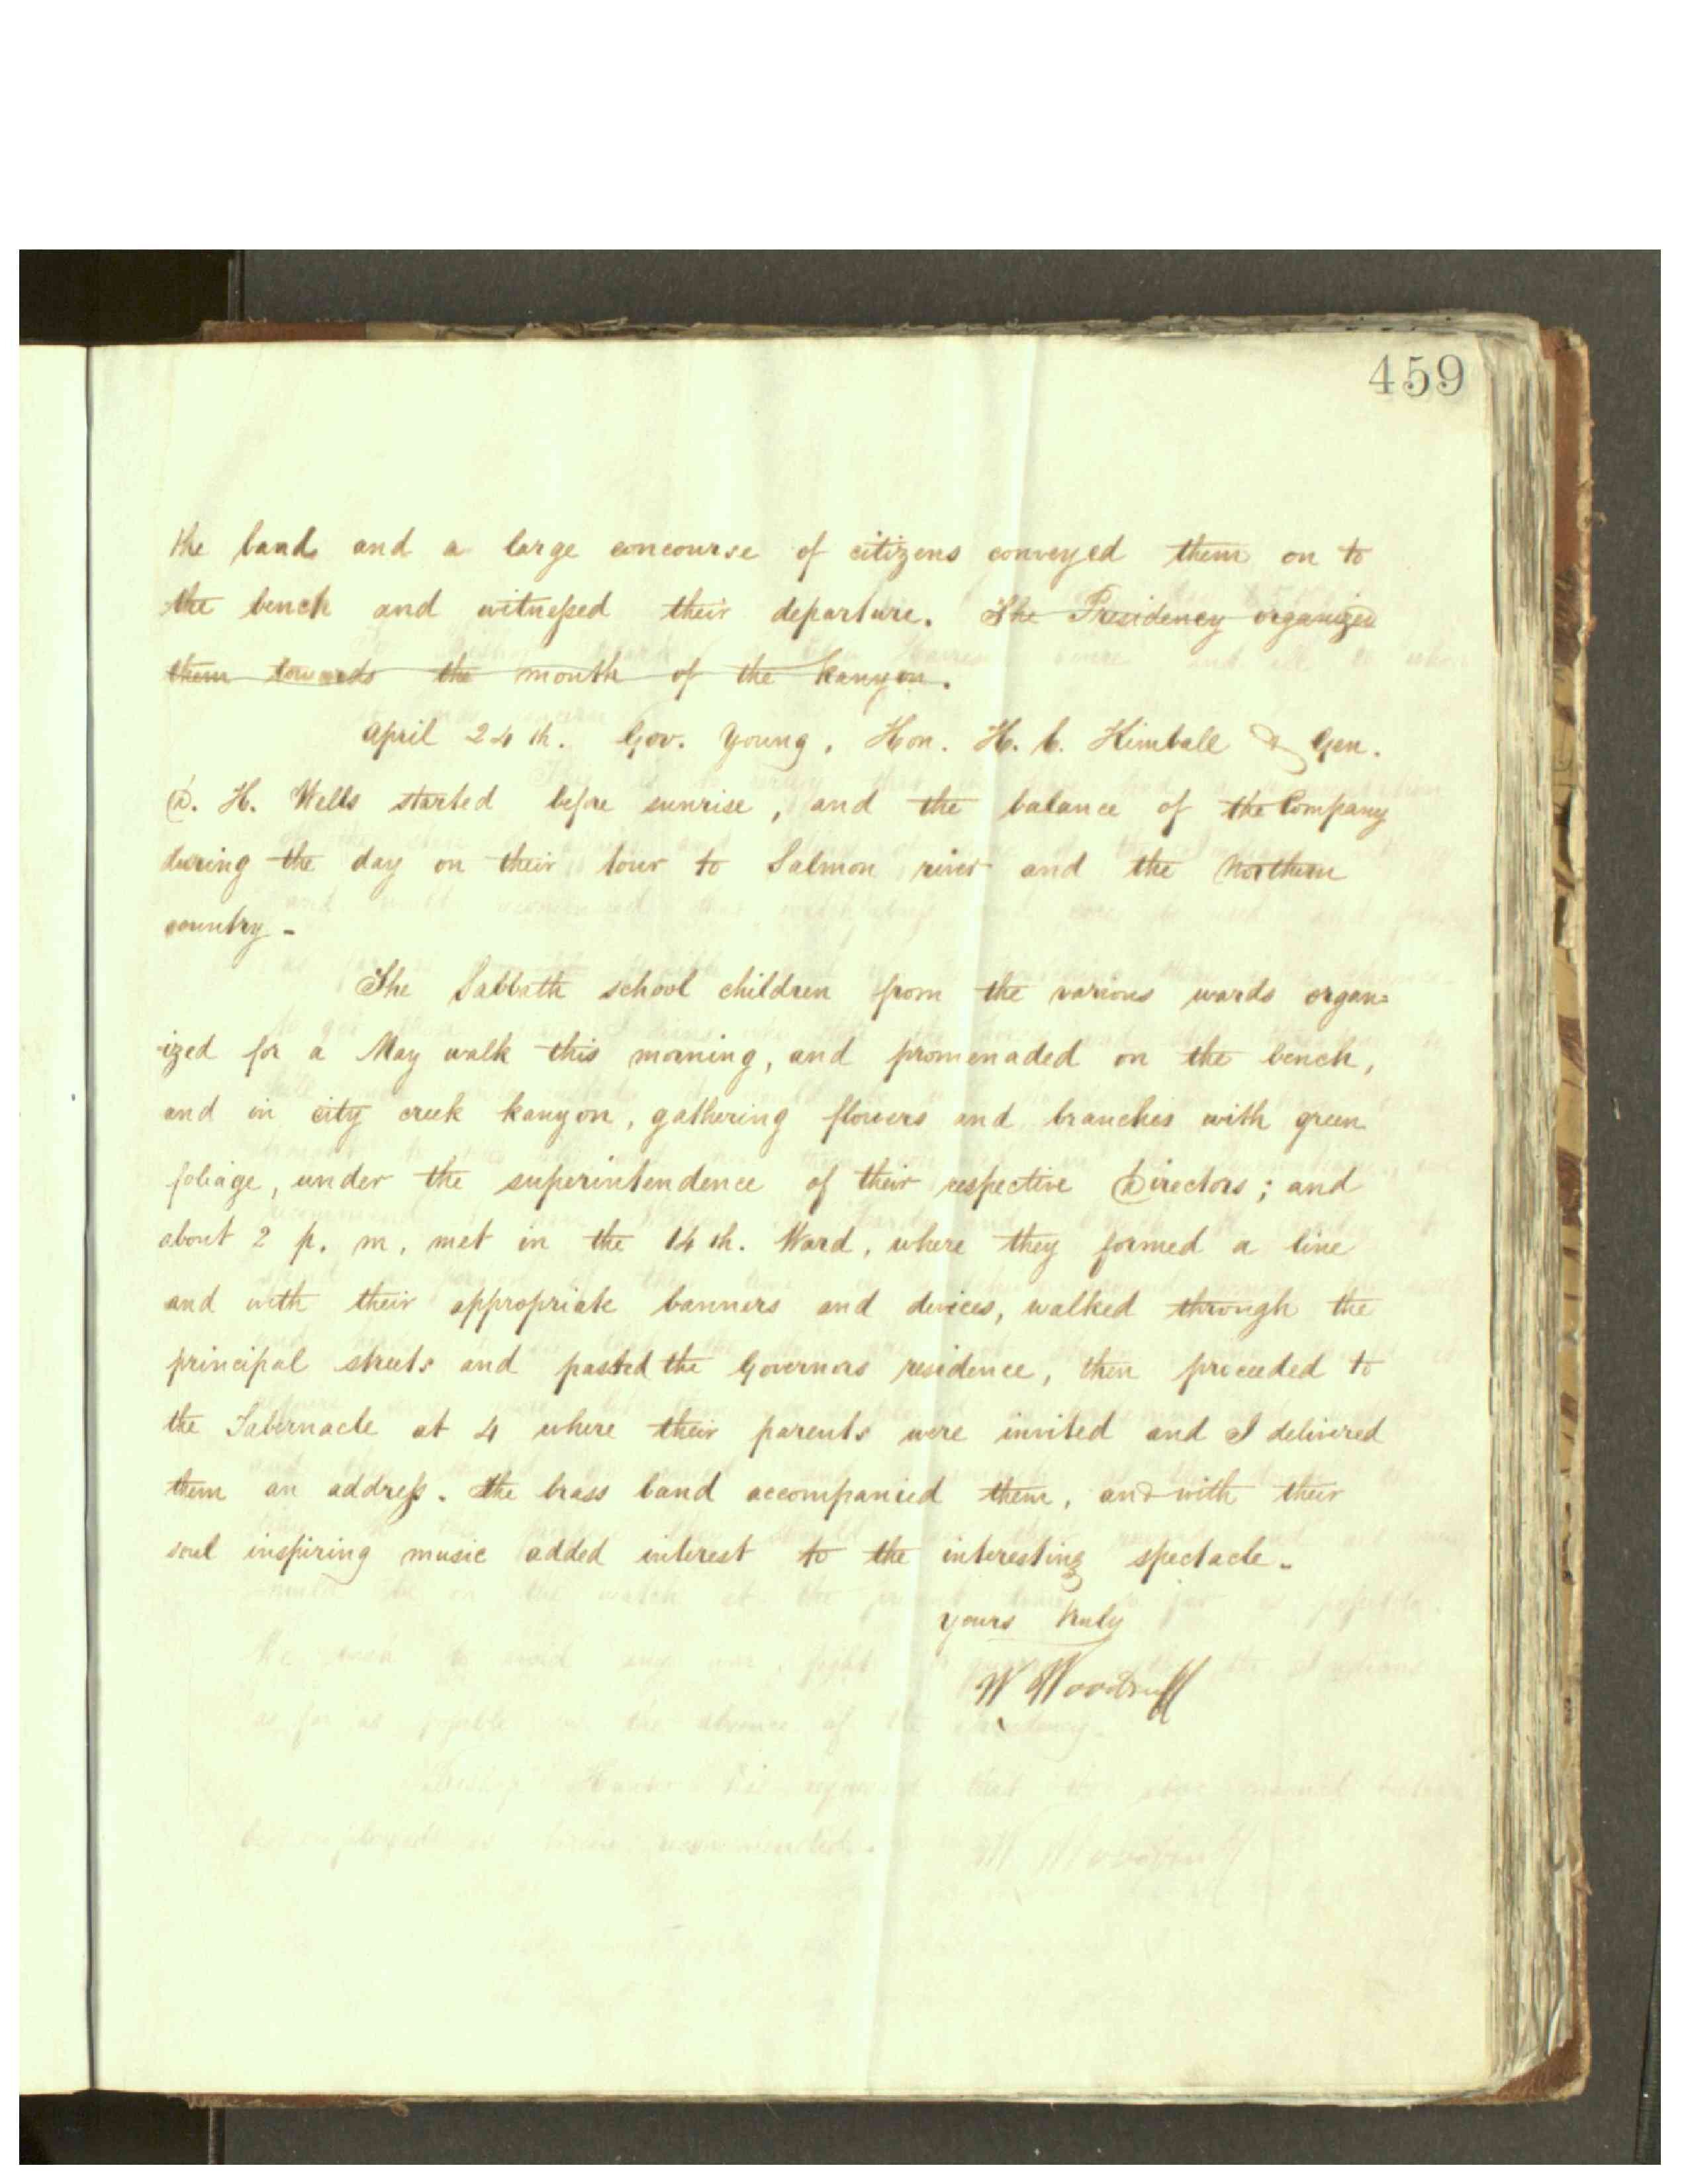 459
the band and a large concourse of citizens conveyed them on to
the bench and witnessed their departure. The Presidency organized
them towards the mouth of the kanyon.
April 24th. Gov. Young, Hon. H. C. Kimball & Gen.
D. H. Wells started before sunrise, and the balance of the Company
during the day on their tour to Salmon river and the Northern
country -
The Sabbath school children from the various wards organ=
-ized for a May walk this morning, and promenaded on the bench,
and in city creek kanyon, gathering flowers and branches with green
foliage, under the superintendence of their respective Directors; and
about 2 p. m, met in the 14th. Ward, where they formed a line
and with their appropriate banners and devices, walked through the
principal streets and passed the Governors residence, then proceeded to
the Tabernacle at 4 where their parents were invited and I delivered
them an address. the brass band accompanied them, and with their
soul inspiring music added interest to the interesting spectacle.
Yours truly
W Woodruff